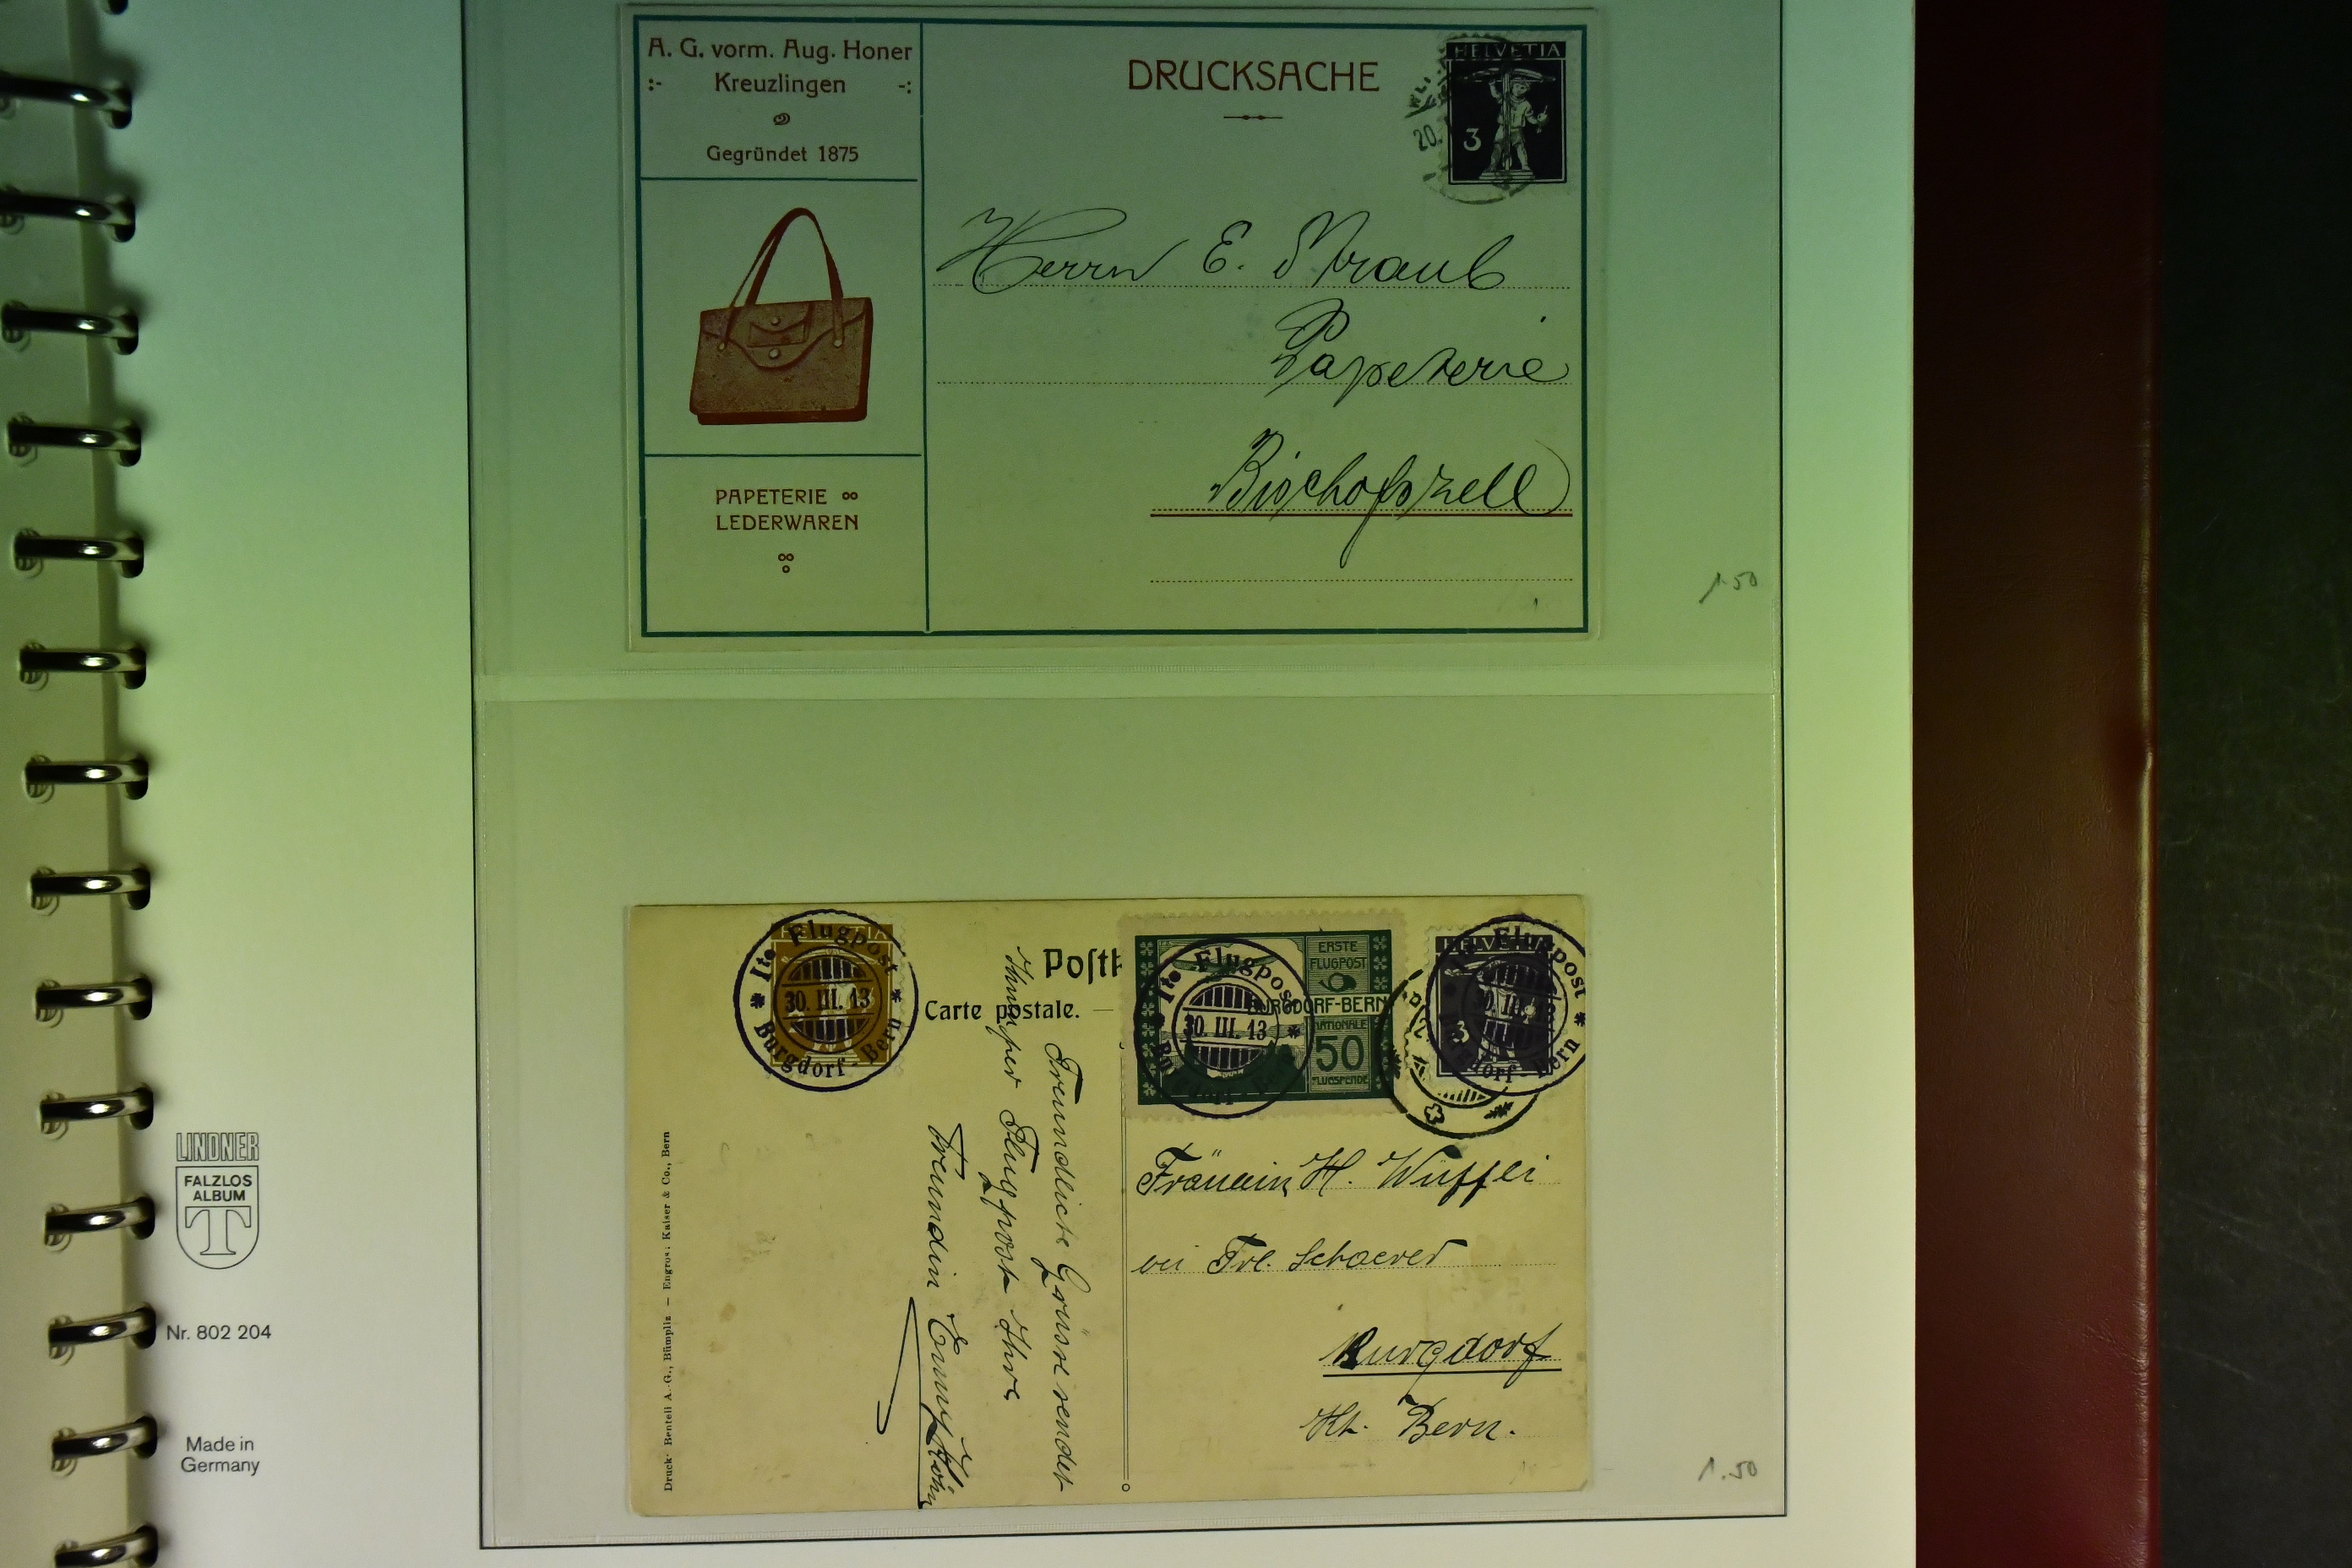 A. G. vorm. Aug. Honer
:- Kreuzlingen -:
Gegründet 1875
PAPETERIE
LEDERWAREN
DRUCKSACHE
HELVETIA
3
20.
Herrn E. Straub
Papeterie
Bischofszell
1.50
HELVETIA
Ite Flugpost
30. III. 13
Burgdorf - Bern
Postk
Carte postale.
ERSTE
FLUGPOST
BURGDORF-BERN
NATIONALE
50
FLUGSPENDE
Ite Flugpost
30. III. 13
HELVETIA
3
Flugpost
Bern
Freundliche Grüsse sendet
Ihnen per Flugpost Ihre
Freundin
Fräulein H. Wüffli
bei Frl. Schaerer
Burgdorf
Kt. Bern.
Druck: Benteli A.-G., Bümpliz — Engros: Kaiser & Co., Bern
1.50
LINDNER
FALZLOS
ALBUM
T
Nr. 802 204
Made in
Germany